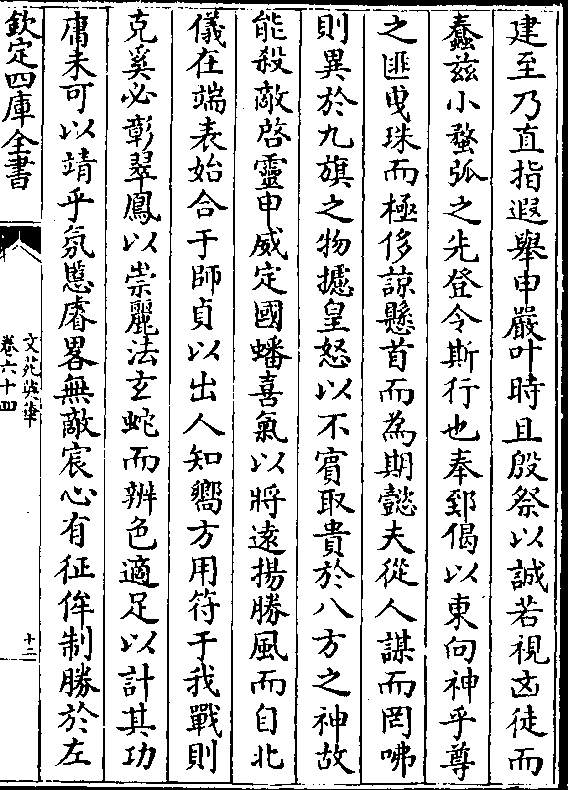 建至乃直指遐舉申嚴叶時且殷祭以誠若視凶徒而
蠢茲小蝥弧之先登令斯行也奉郅偈以東向神乎尊
之匪曳珠而極侈諒懸首而為期懿夫從人謀而罔咈
則異於九旗之物攄皇怒以不賔取貴於八方之神故
能殺敵啓靈申威定國蟠喜氣以將遠揚勝風而自北
儀在端表始合于師貞以出人知嚮方用符于我戰則
克奚必彰翠鳳以崇麗法玄蛇而辨色適足以計其功
庸未可以靖乎氛慝睿畧無敵宸心有征侔制勝於左
欽定四庫全書
文苑英華
卷六十四
十二